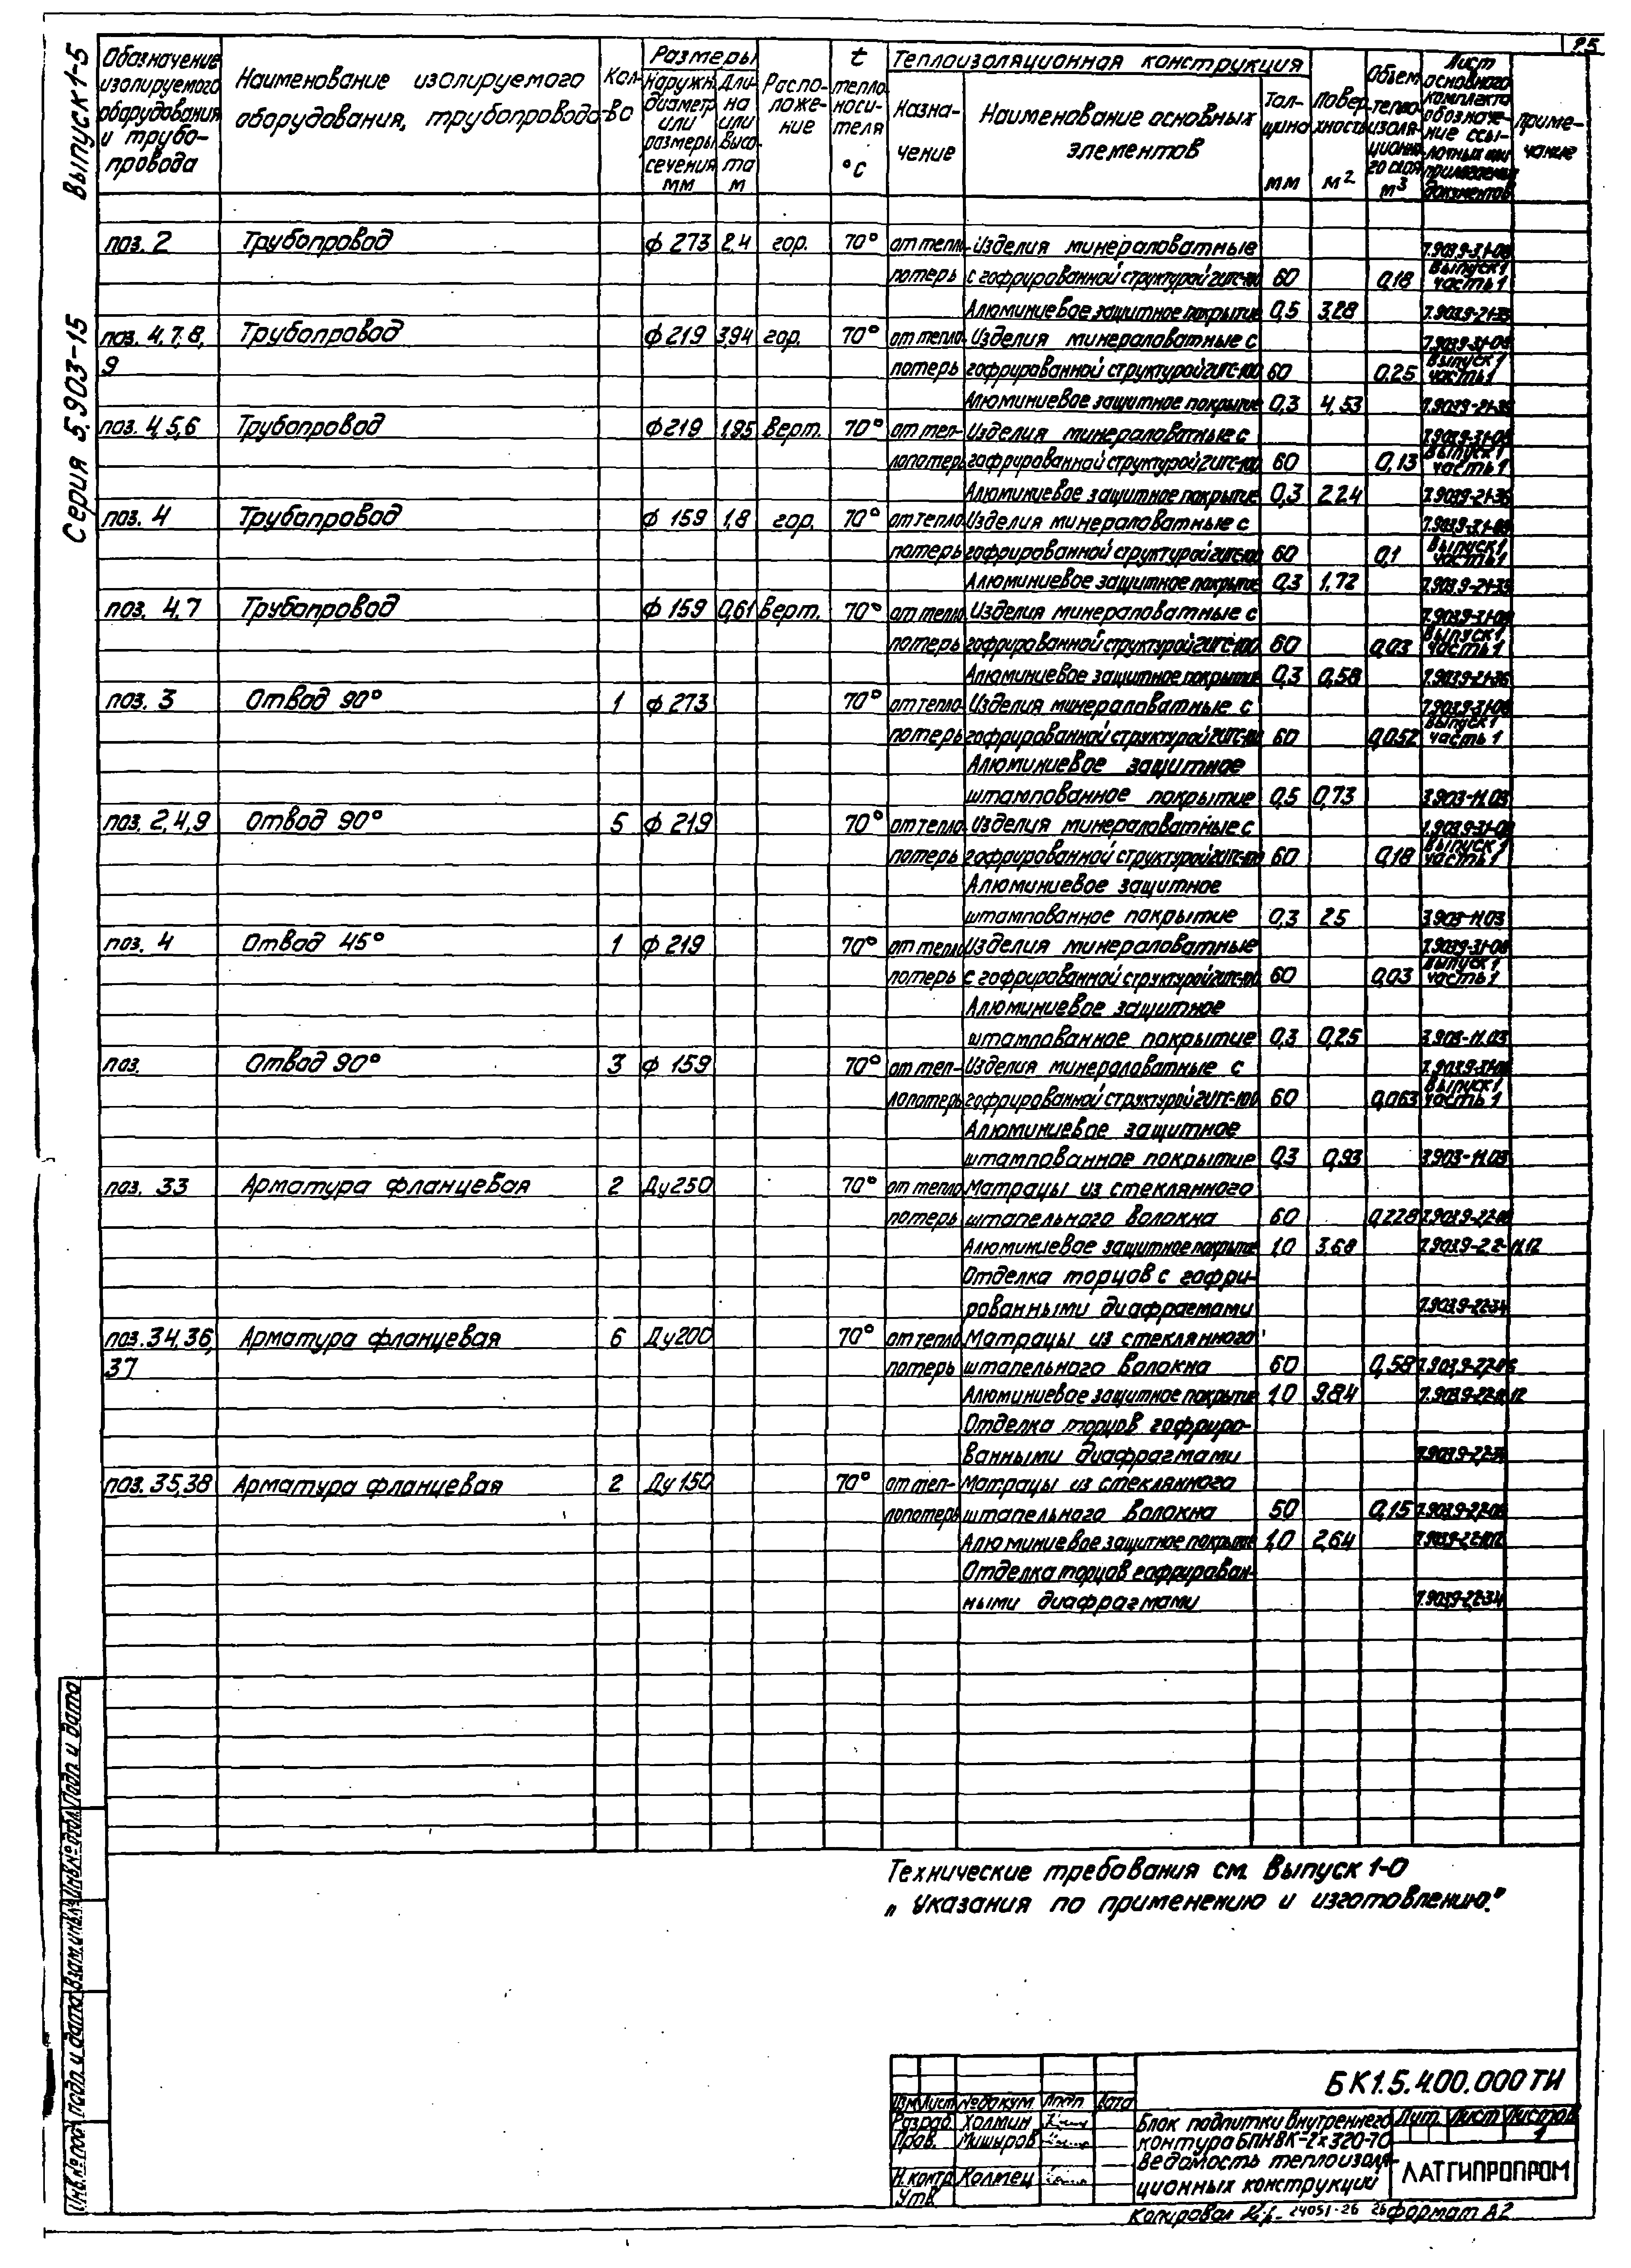 25
Выпуск 1-5
Серия 5.903-15
Обозначение изолируемого оборудования и трубопровода
Наименование изолируемого оборудования, трубопровода
Кол-во
Размеры
Наружн. диаметр или размеры сечения мм
Длина или высота м
Расположение
t теплоносителя °С
Теплоизоляционная конструкция
Назначение
Наименование основных элементов
Толщина мм
Поверхность м2
Объем теплоизоляционного слоя м3
Лист основного комплекта обозначение ссылочных или прилагаемых документов
Примечание
поз. 2 Трубопровод ф 273 2,4 гор. 70° от тепло- Изделия минераловатные 7.903.9-3.1-08
потерь с гофрированной структурой 60 0,18 Выпуск 1 часть 1
Алюминиевое защитное покрытие 0,5 3,28
поз. 4,7,8, Трубопровод ф 219 3,94 гор. 70° от тепло Изделия минераловатные с
9 потерь гофрированной структурой 60 0,25 Выпуск 1 часть 1
Алюминиевое защитное покрытие 0,3 4,53
поз. 4,5,6 Трубопровод ф 219 1,95 Верт. 70° от теп- Изделия минераловатные с
лопотерь гофрированной структурой 60 0,13 Выпуск 1 часть 1
Алюминиевое защитное покрытие 0,3 2,24
поз. 4 Трубопровод ф 159 1,8 гор. 70° от тепло Изделия минераловатные с
потерь гофрированной структурой 60 0,1 Выпуск 1 часть 1
Алюминиевое защитное покрытие 0,3 1,72
поз. 4,7 Трубопровод ф 159 0,61 Верт. 70° от тепло Изделия минераловатные с
потерь гофрированной структурой 60 0,03 Выпуск 1 часть 1
Алюминиевое защитное покрытие 0,3 0,58
поз. 3 Отвод 90° 1 ф 273 70° от тепло- Изделия минераловатные с
потерь гофрированной структурой 60 0,052 Выпуск 1 часть 1
Алюминиевое защитное
штампованное покрытие 0,5 0,73 3.903-11.03
поз. 2,4,9 Отвод 90° 5 ф 219 70° от тепло- Изделия минераловатные с
потерь гофрированной структурой 60 0,18 Выпуск 1 часть 1
Алюминиевое защитное
штампованное покрытие 0,3 2,5 3.903-11.03
поз. 4 Отвод 45° 1 ф 219 70° от тепло Изделия минераловатные
потерь с гофрированной структурой 60 0,03 Выпуск 1 часть 1
Алюминиевое защитное
штампованное покрытие 0,3 0,25 3.903-11.03
поз. Отвод 90° 3 ф 159 70° от теп- Изделия минераловатные с
лопотерь гофрированной структурой 60 0,063 Выпуск 1 часть 1
Алюминиевое защитное
штампованное покрытие 0,3 0,93 3.903-11.03
поз. 33 Арматура фланцевая 2 Ду250 70° от тепло Матрацы из стеклянного
потерь штапельного волокна 60 0,228
Алюминиевое защитное покрытие 1,0 3,68 7.903.9-2.2-11,12
Отделка торцов с гофри-
рованными диафрагмами 7.903.9-2.2-34
поз. 34,36, Арматура фланцевая 6 Ду200 70° от тепло Матрацы из стеклянного
37 потерь штапельного волокна 60 0,58
Алюминиевое защитное покрытие 1,0 9,84
Отделка торцов гофриро-
ванными диафрагмами
поз. 35,38 Арматура фланцевая 2 Ду 150 70° от теп- Матрацы из стеклянного
лопотерь штапельного волокна 50 0,15
Алюминиевое защитное покрытие 1,0 2,64
Отделка торцов гофрирован-
ными диафрагмами 7.903.9-2.2-34
Технические требования см. Выпуск 1-0
„ Указания по применению и изготовлению."
Инв.№ подл. Подп. и дата Взам.инв.№ Инв.№ дубл. Подп. и дата
БК1.5.400.000ТИ
Изм Лист № докум. Подп. Дата
Разраб. Холмин
Пров. Мишуров
Н.контр. Колтец
Утв.
Блок подпитки внутреннего
контура БПНВК-2х320-70
Ведомость теплоизоля-
ционных конструкций
Лит. Лист Листов
1
ЛАТГИПРОПРОМ
Копировал 24051-26 26 формат А2